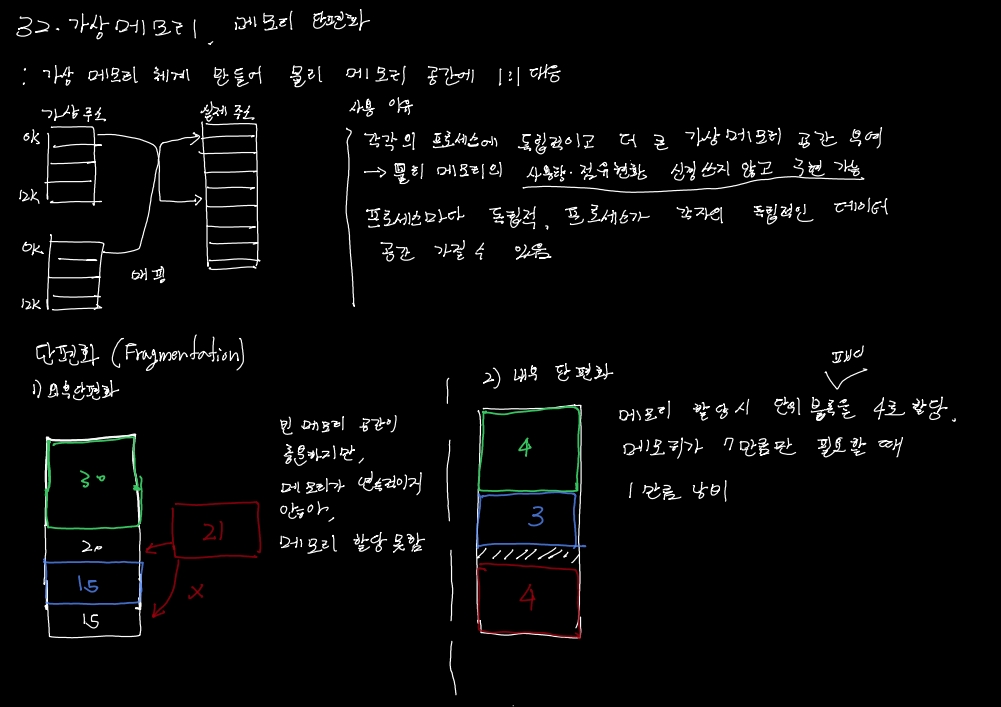 32. 가상메모리, 메모리 단편화
: 가상 메모리 체계 만들어 물리 메모리 공간에 1:1 대응
가상 주소
실제 주소
0K
12K
0K
12K
매핑
사용 이유
각각의 프로세스에 독립적이고 더 큰 가상메모리 공간 부여
→ 물리 메모리의 사용량·점유현황 신경쓰지 않고 구현 가능
프로세스마다 독립적, 프로세스가 각자의 독립적인 데이터
공간 가질 수 있음
단편화 (Fragmentation)
1) 외부단편화
30
20
15
15
21
X
빈 메모리 공간이
충분하지만,
메모리가 연속적이지
않아,
메모리 할당 못함
2) 내부 단편화
4
3
4
메모리 할당시 단위 블록을 4로 할당.
메모리가 7만큼만 필요할 때
1 만큼 낭비